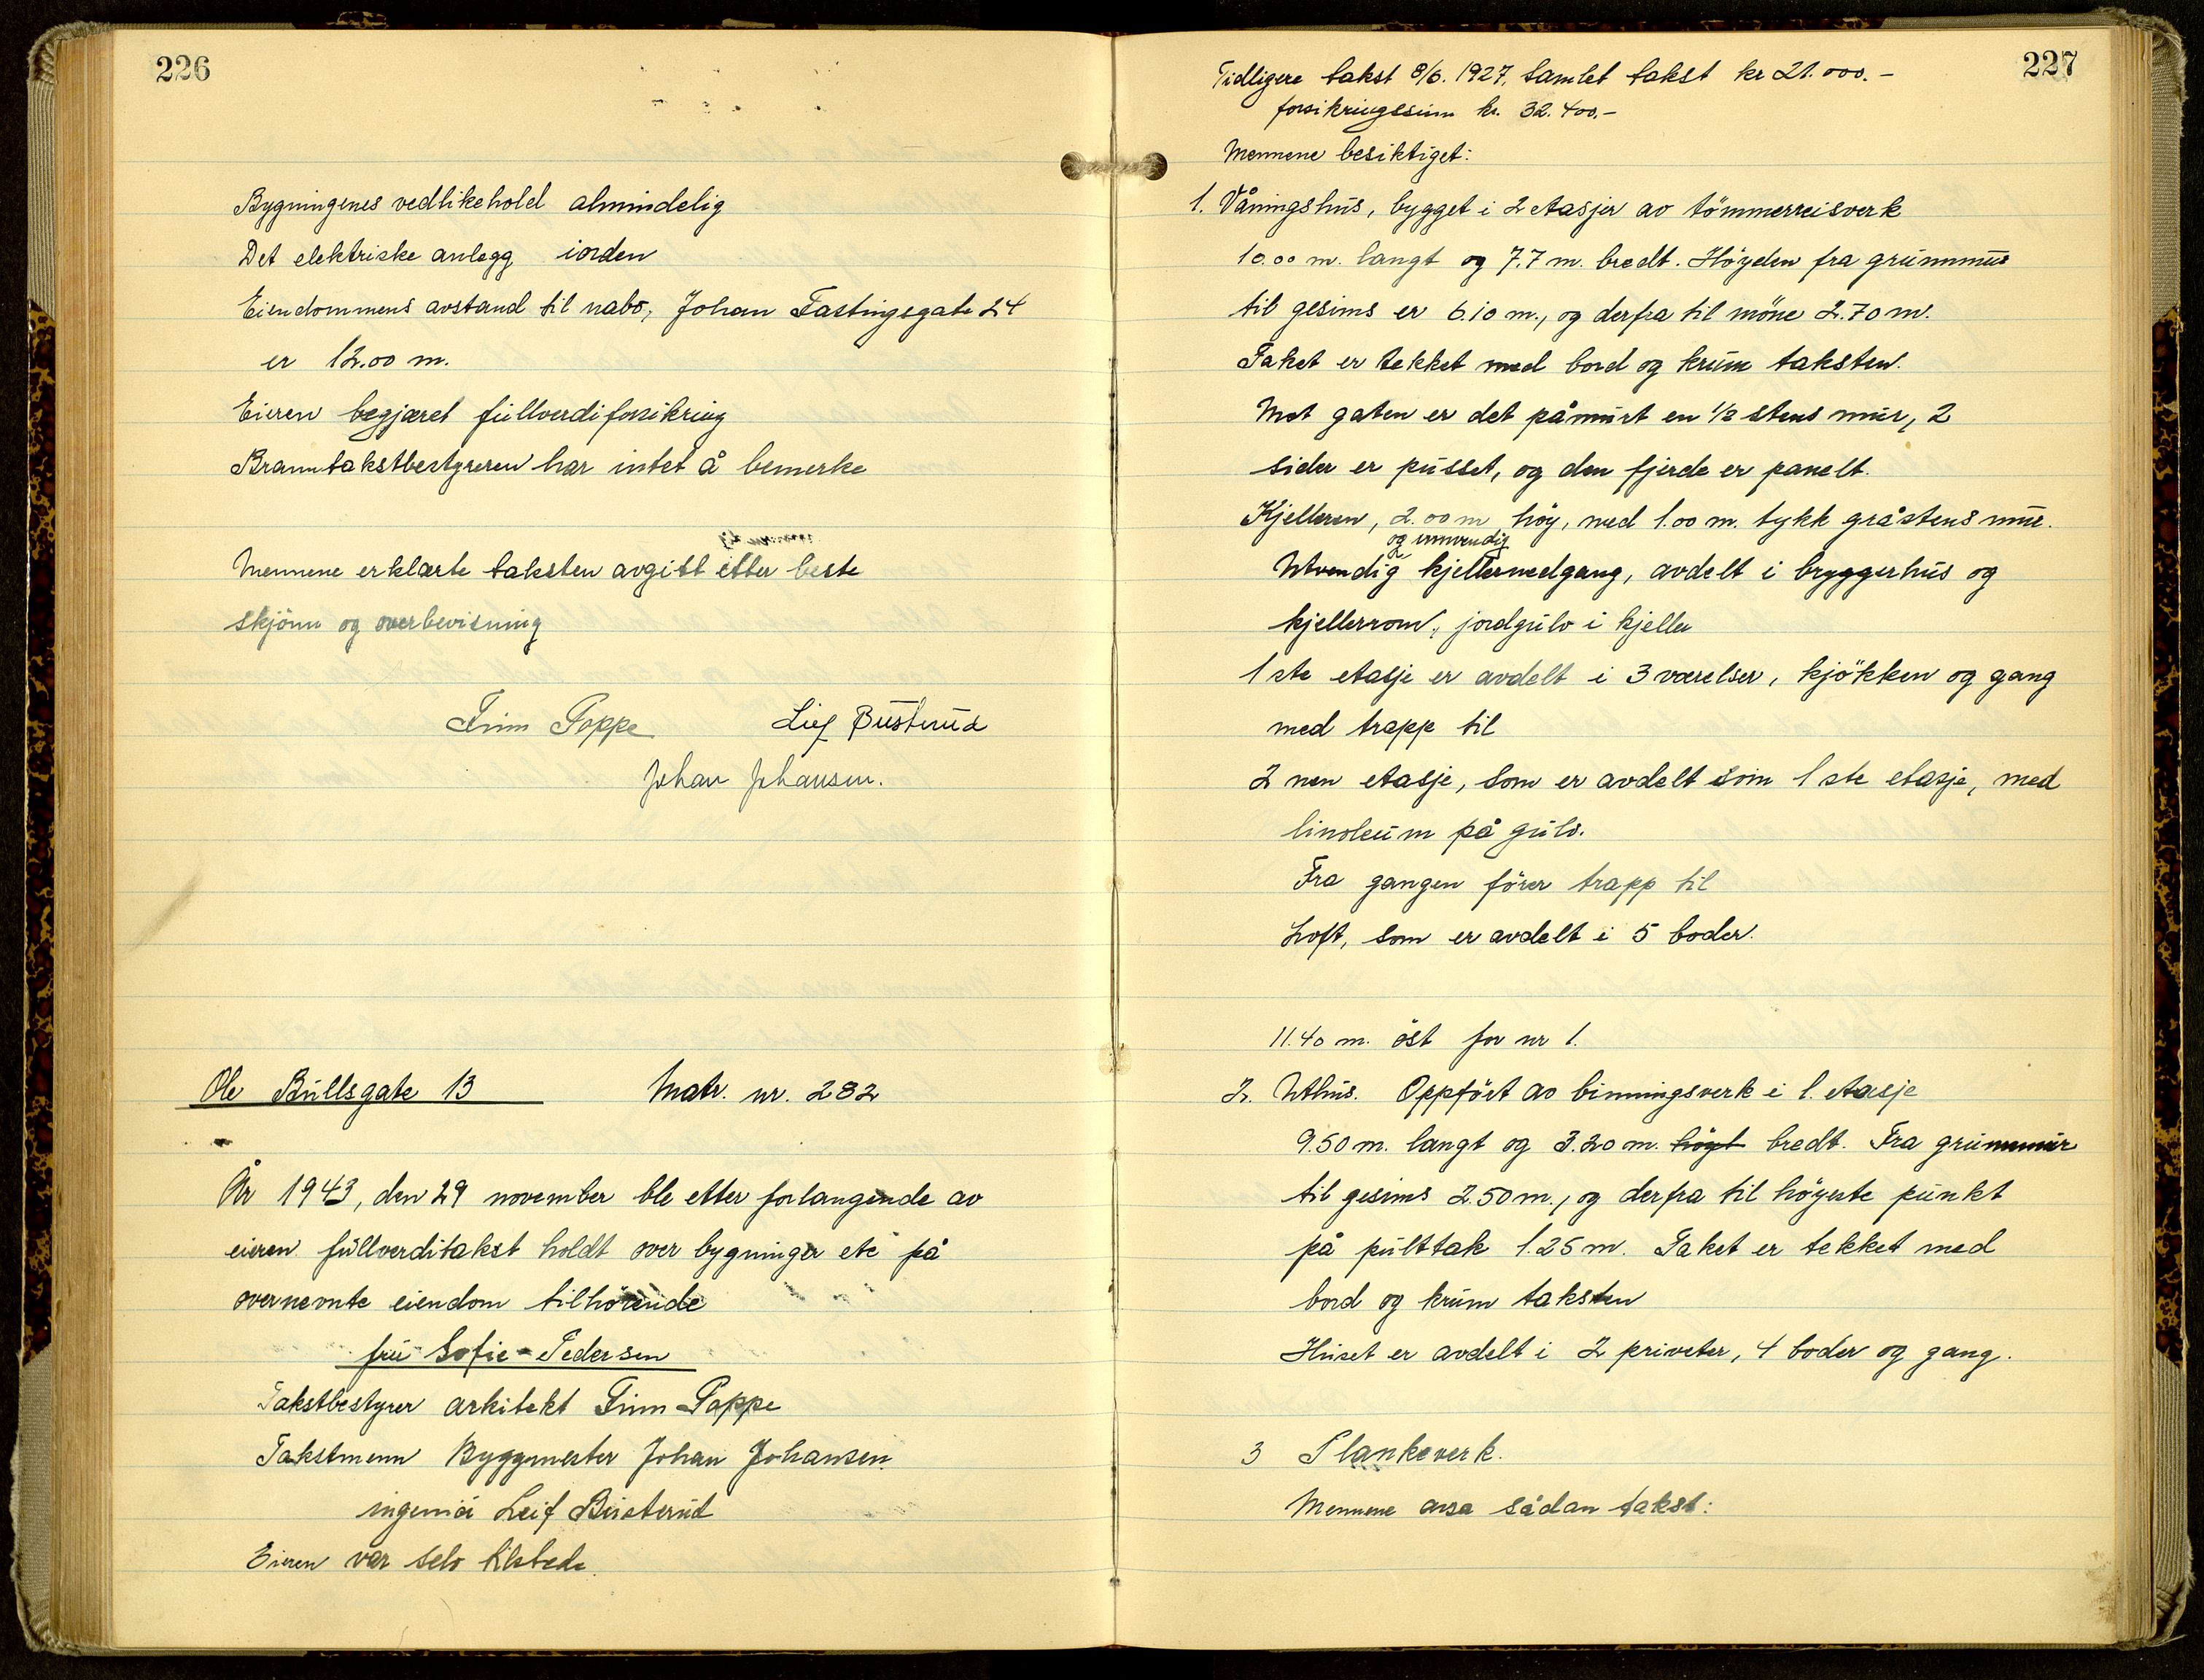 226
Bygningenes vedlikehold almindelig
Det elektriske anlegg iorden
Eiendommens avstand til nabo, Johan Fastingsgate 24
er 12.00 m.
Eieren begjæret fullverdiforsikring
Branntakstbestyreren har intet å bemerke
Mennene erklærte taksten avgitt etter beste
skjönn og overbevisning
Finn Poppe Leif Busterud
Johan Johansen.
Ole Bullsgate 13 Matr. nr. 282
År 1943, den 29 november ble etter forlangende av
eieren fullverditakst holdt over bygninger etc på
overnevnte eiendom tilhörende
fru Sofie Pedersen
Takstbestyrer arkitekt Finn Poppe
Takstmenn Byggmester Johan Johansen
ingeniör Leif Busterud
Eieren var selv tilstede.
227
Tidligere takst 8/6. 1927, Samlet takst kr 21.000.-
forsikringssum kr. 32.400.-
Mennene besiktiget:
1. Våningshus, bygget i 2 etasjer av tömmerreisverk
10.00 m. langt og 7.7 m. bredt. Höyden fra grunnmur
til gesims er 6.10 m., og derfra til möne 2.70 m.
Taket er tekket med bord og krum taksten.
Mot gaten er det påmurt en 1/2 stens mur, 2
sider er pusset, og den fjerde er panelt.
Kjelleren, 2.00 m höy, med 1.00 m. tykk gråstens mur.
og innvendig
Utvendig kjellernedgang, avdelt i bryggerhus og
kjellerrom, jordgulv i kjeller
1 ste etasje er avdelt i 3 værelser, kjökken og gang
med trapp til
2 nen etasje, som er avdelt som 1 ste etasje, med
linoleum på gulv.
Fra gangen förer trapp til
Loft, som er avdelt i 5 boder.
11.40 m. öst for nr 1.
2. Uthus. Oppfört av binningsverk i 1. etasje
9.50 m. langt og 3.20 m. höyt bredt. Fra grunnmur
til gesims 2.50 m., og derfra til höyeste punkt
på pulttak 1.25 m. Taket er tekket med
bord og krum taksten
Huset er avdelt i 2 priveter, 4 boder og gang.
3 Plankeverk.
Mennene avga sådan takst: